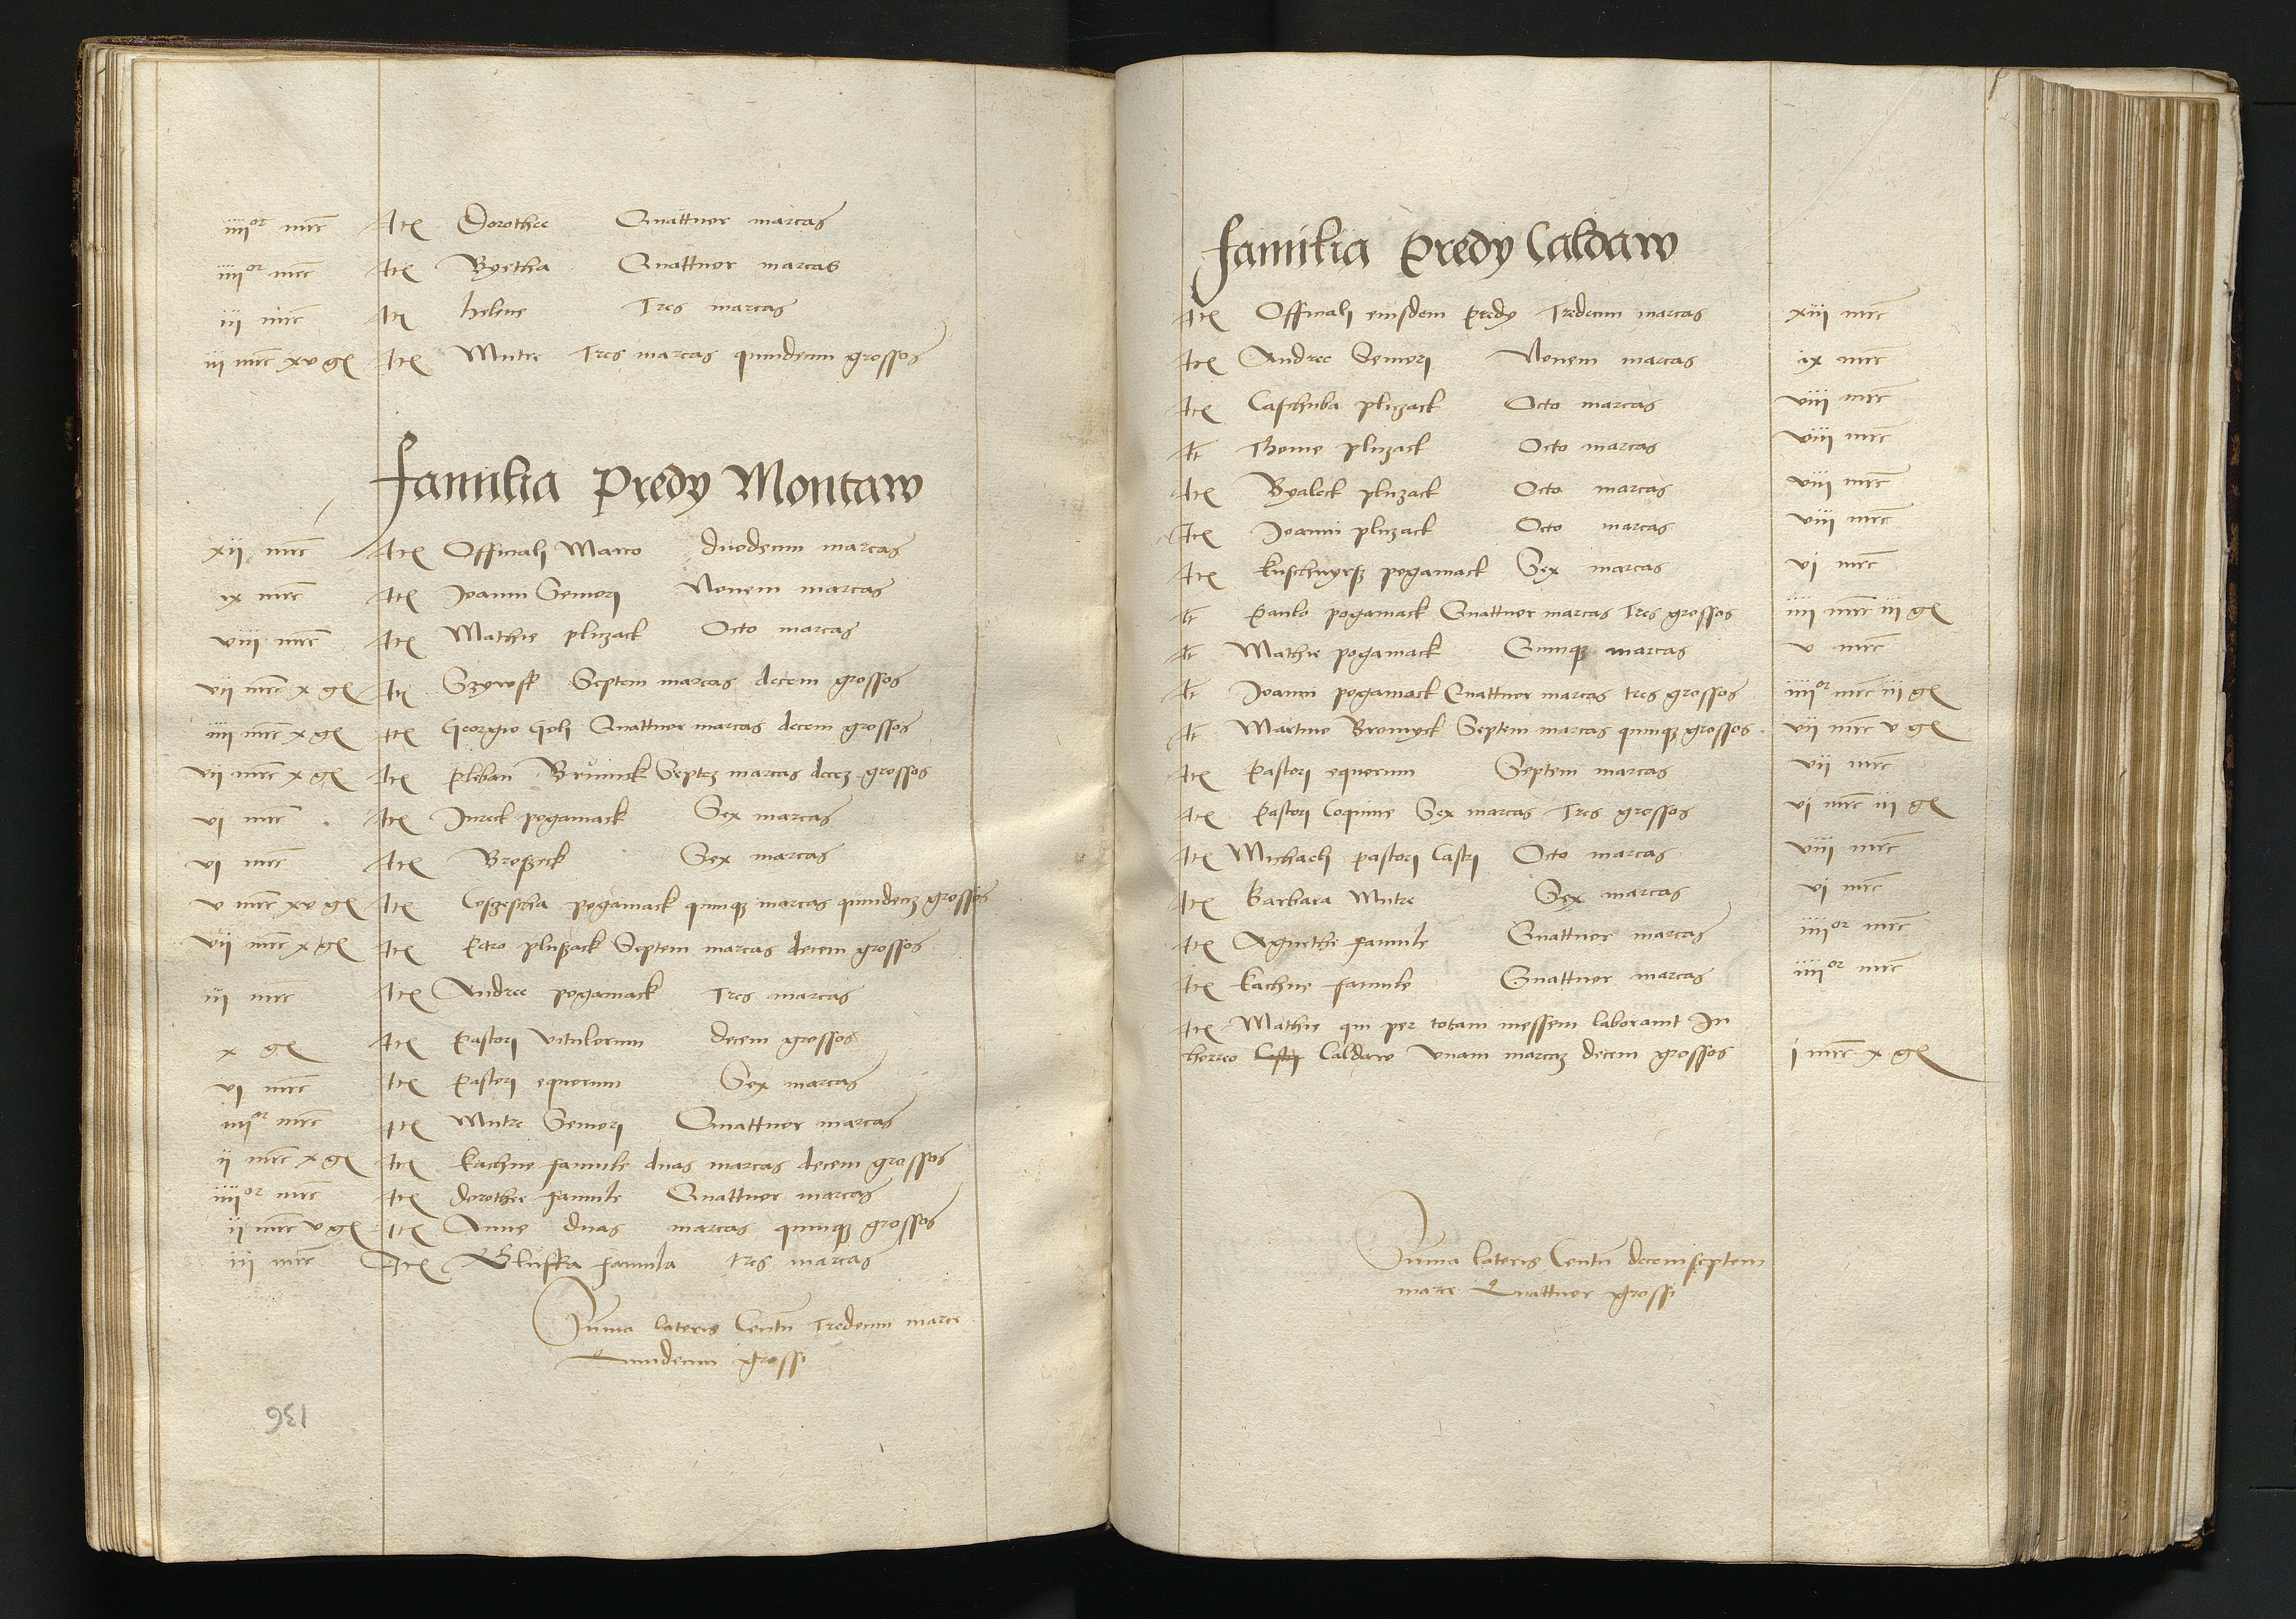 iiiior mrc Itē Dorothee Quattuor marcas
iiiior mrc Itē Byetha Quattuor marcas
iij mrc Itē helene Tres marcas
iij mrc xv gſ Itē Mutre Tres marcas quindecim grossos
familia Predy Montaw
xij mrc Itē Officiali Marco duodecim marcas
ix mrc Itē Joanni Seniori Nouem marcas
viij mrc Itē Mathie pluzack Octo marcas
vij mrc x gſ Itē Septem marcas decem grossos
iiij mrc x gſ Itē Georgio Goli Quattuor marcas decem grossos
vij mrc x gſ Itē pliban Septeȝ marcas deceȝ grossos
vj mrc Itē Jureck pogamack Sex marcas
vj mrc Itē Broßeck Sex marcas
v mrc xv gſ Itē pogamack quinqȝ marcas quindecȝ grossos
vij mrc x gſ Itē Petro plußack Septem marcas decem grossos
iij mrc Itē Andree pogamack Tres marcas
x gſ Itē Pastori vitulorum decem grossos
vj mrc Itē Pastori equorum Sex marcas
iiijor mrc Itē Mutre Seniori Quattuor marcas
ij mrc x gſ Itē kachne famule duas marcas decem grossos
iiijor mrc Itē dorothee famule Quattuor marcas
ij mrc v gſ Itē Anne duas marcas quinqȝ grossos
iij mrc Itē famula tres marcas
Sūma lateris Centū Tredecim marce
Quindecim grossi
136
familia Predy Caldaw
Itē Officiali eiusdem predy Tredecim marcas xiij mrc
Itē Andree Seniori Nouem marcas ix mrc
Itē Caschuba pluzack Octo marcas viij mrc
It Thome pluzack Octo marcas viij mrc
Itē Byaleck pluzack Octo marcas viij mrc
Itē Joanni pluzack Octo marcas viij mrc
Itē pogamack Sex marcas vj mrc
It Paulo pogamack Quattuor marcas Tres grossos iiij mrc iij gſ
It Mathie pogamack Quinqȝ marcas v mrc
It Joanni pogamack Quattuor marcas tres grossos iiijor mrc iij gſ
It Martino Bromyck Septem marcas quinqȝ grossos vij mrc v gſ
Itē Pastori equorum Septem marcas vij mrc
Itē Pastori Coquine Sex marcas Tres grossos vj mrc iij gſ
Itē Michaeli pastori Castri Octo marcas viij mrc
Itē Barbara Mutre Sex marcas vj mrc
Itē Agnethe famule Quattuor marcas iiijor mrc
Itē kachne famule Quattuor marcas iiijor mrc
Itē Mathie qui per totam messem laborauit In
horreo Castri Caldaw vnam marcaȝ decem grossos j mrc x gſ
Sūma lateris Centū decemseptem
marce Quattuor grossi